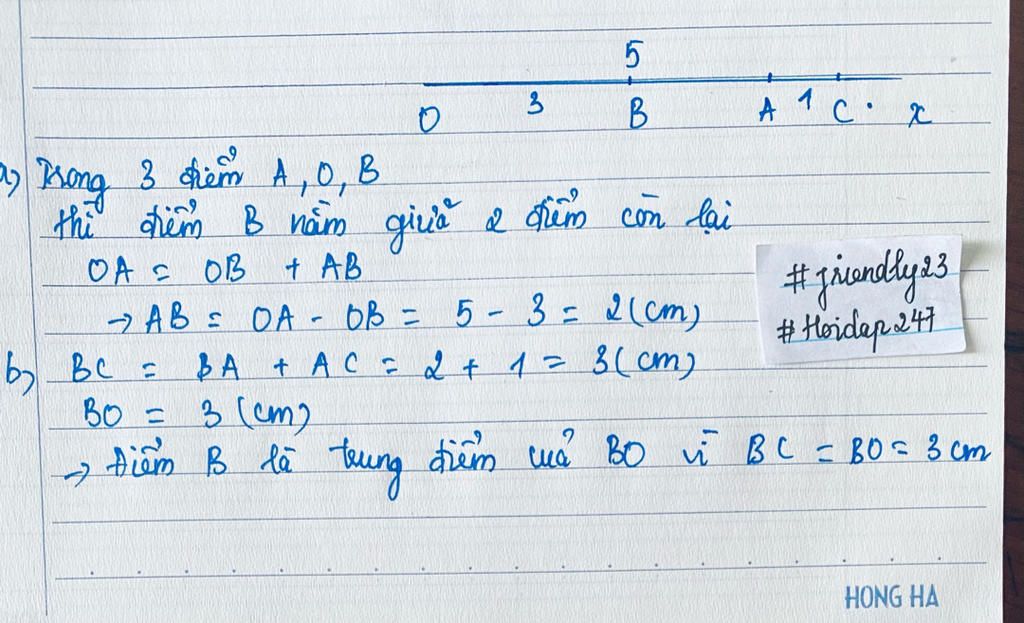 5
O 3 B A 1 C . x
a) Trong 3 điểm A, O, B
thì điểm B nằm giữa 2 điểm còn lại
OA = OB + AB
→ AB = OA - OB = 5 - 3 = 2 (cm)
#friendly23
#Hoidap247
b) BC = BA + AC = 2 + 1 = 3 (cm)
BO = 3 (cm)
→ Điểm B là trung điểm của BO vì BC = BO = 3 cm
HONG HA